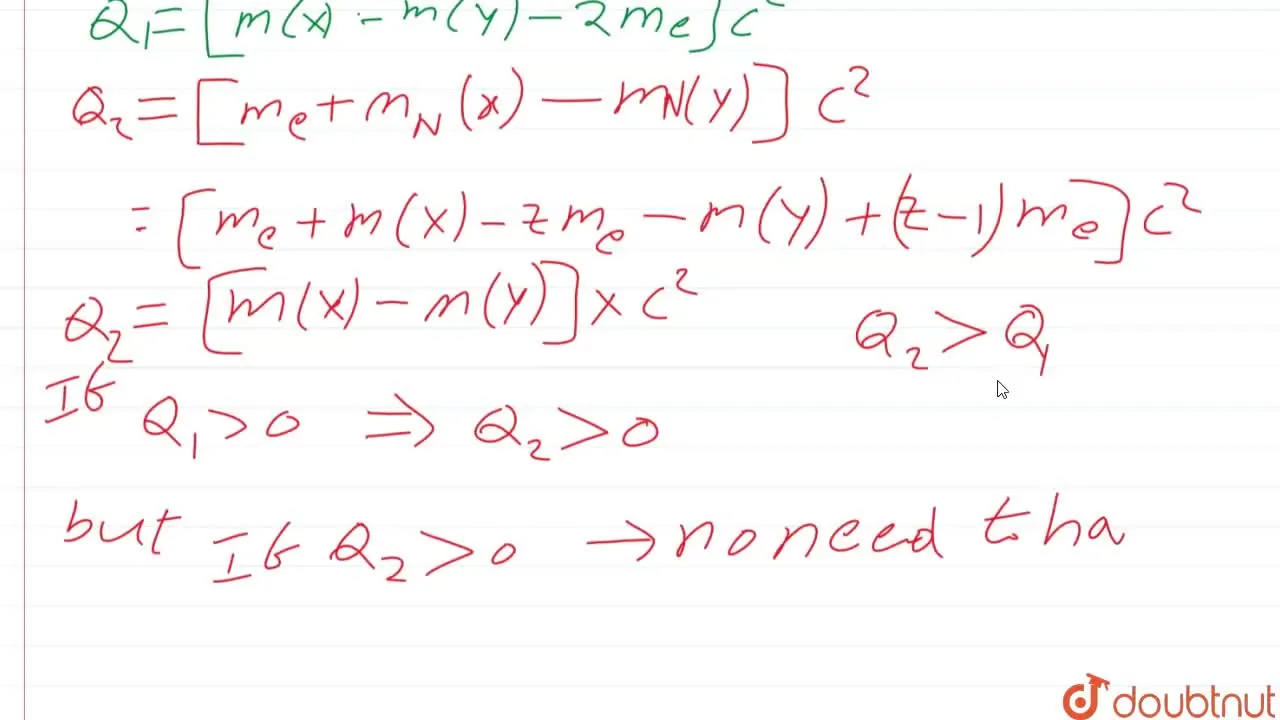 Q₁ = [m(x) - m(y) - 2me]c²
Q₂ = [me + mN(x) — mN(y)] c²
= [me + m(x) - zme - m(y) + (z-1)me]c²
Q₂ = [m(x) - m(y)] x c²
Q₂ > Q₁
If Q₁ > 0 ⇒ Q₂ > 0
but If Q₂ > 0 → no need tha
doubtnut